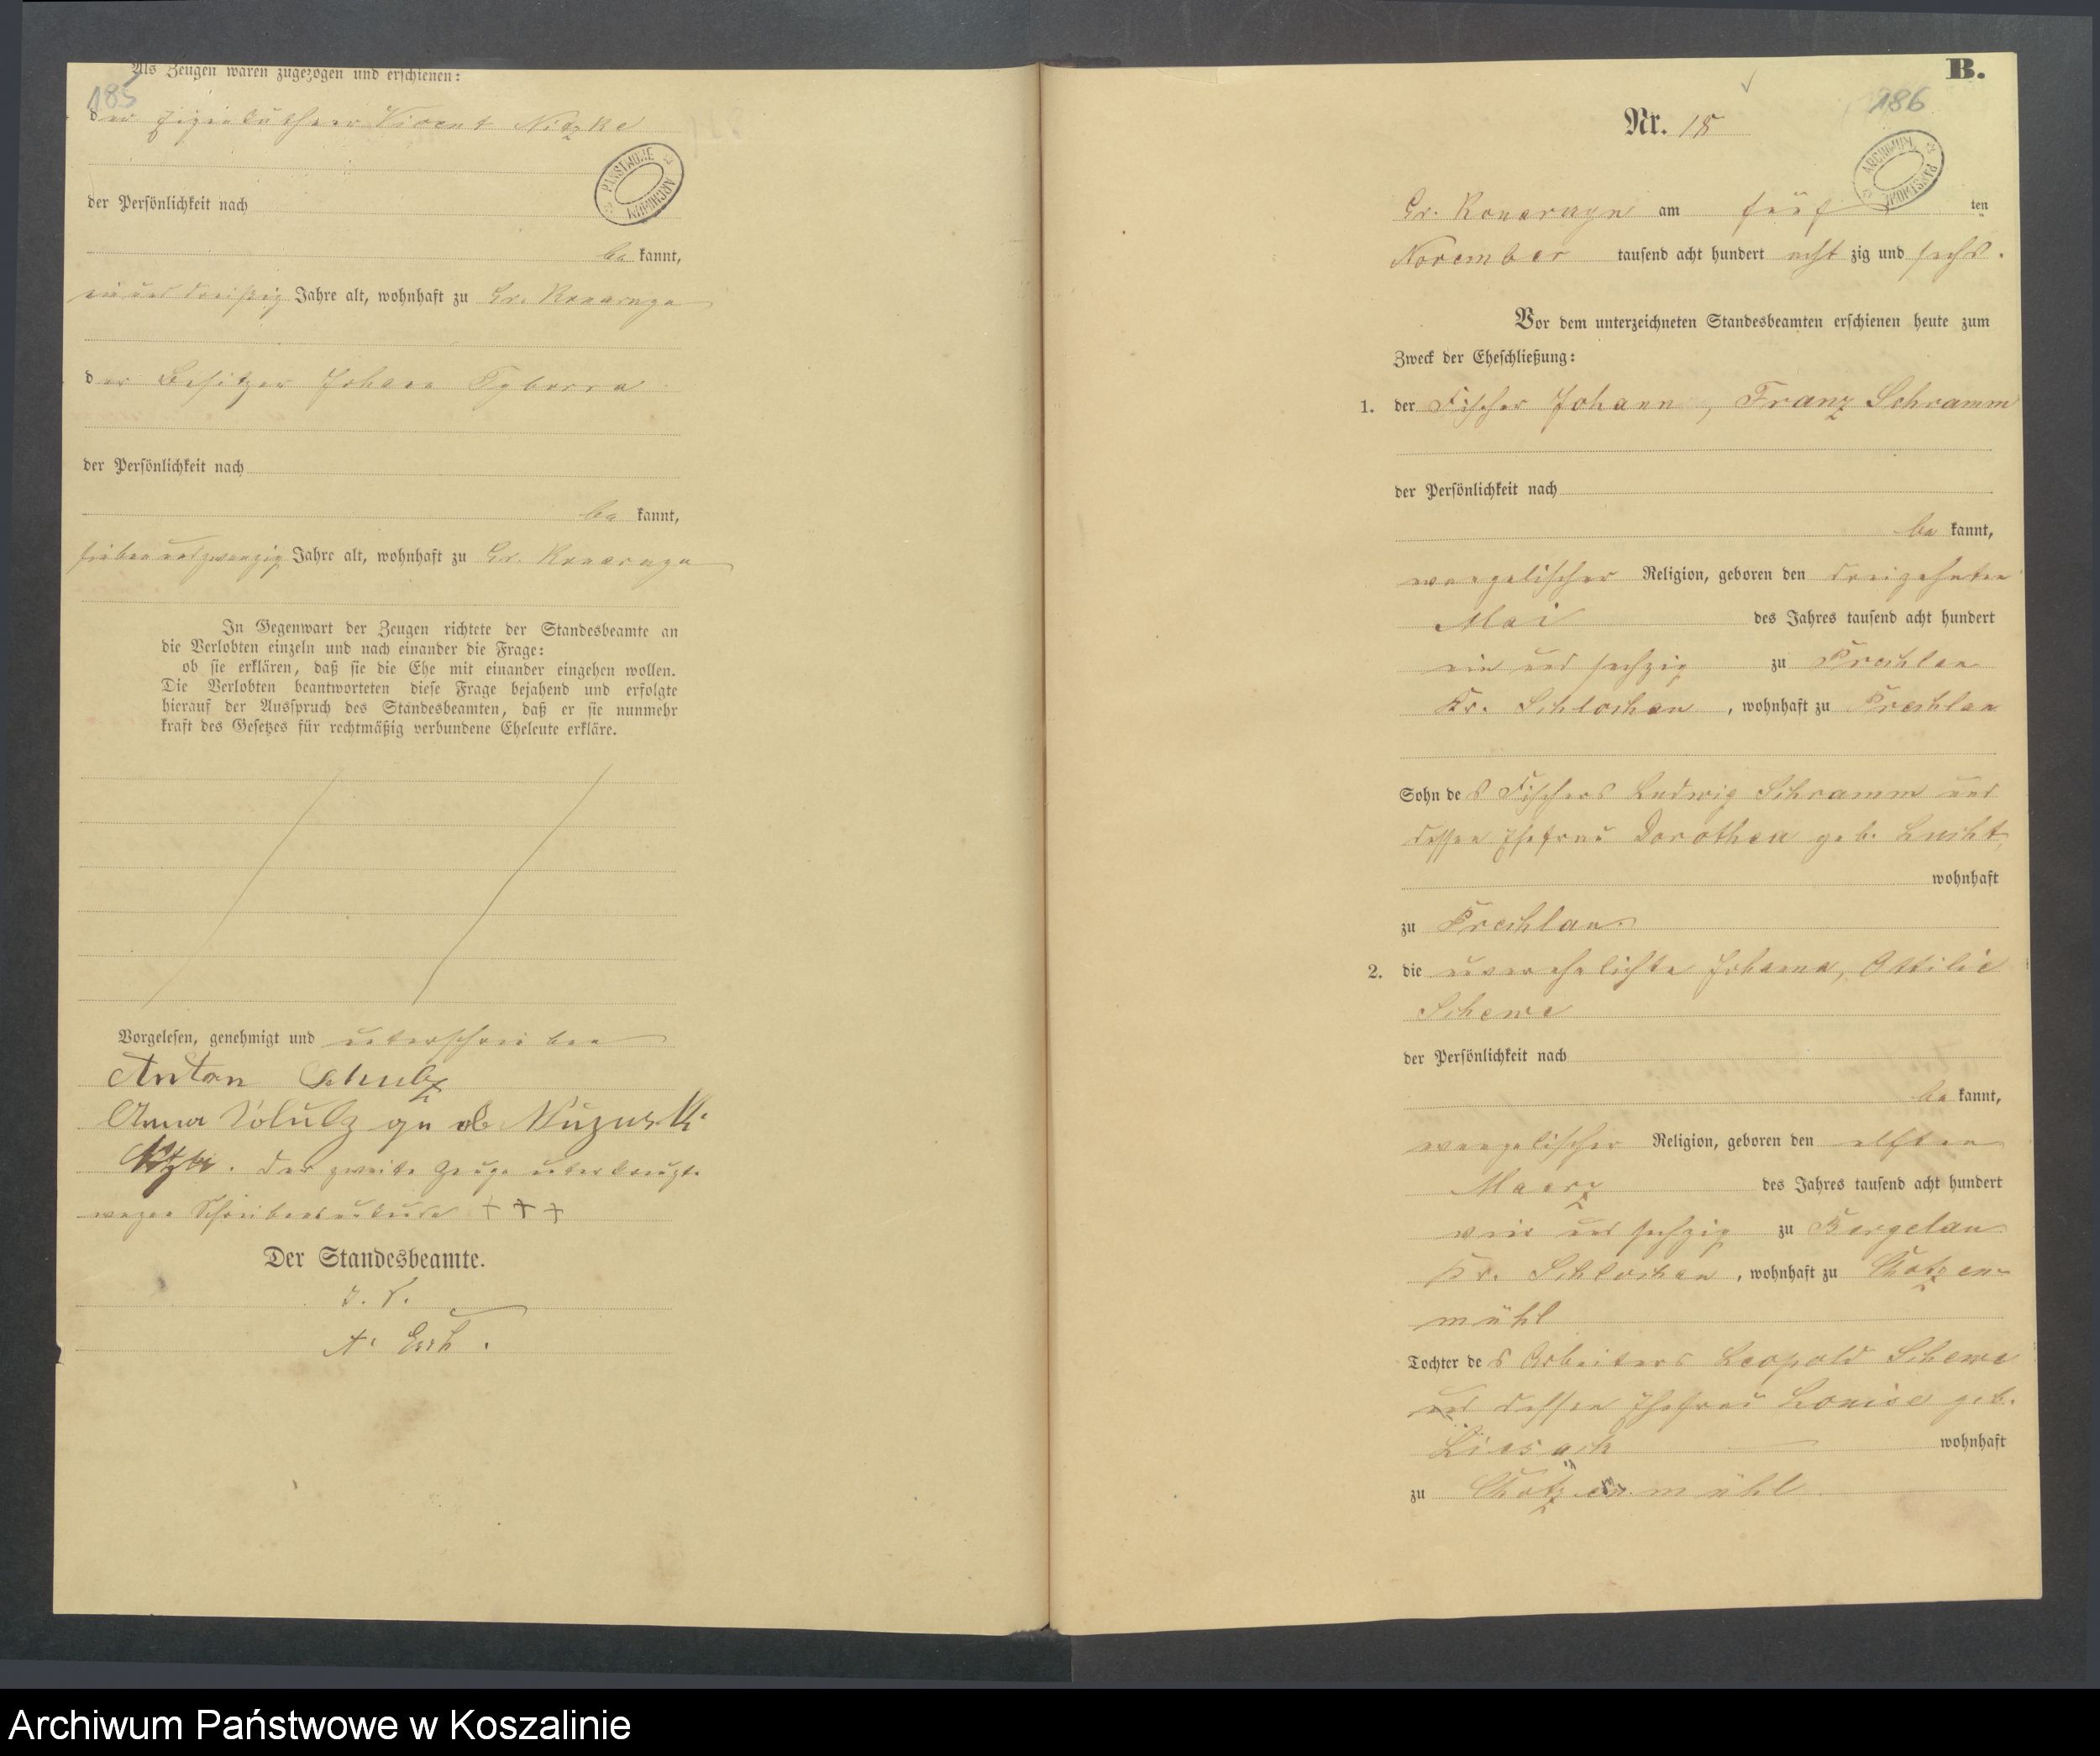 Als Zeugen waren zugezogen und erschienen:
185
der Eigenthümer Vicent Nitzke
PAŃSTWOWE ARCHIWUM
der Persönlichkeit nach
be kannt,
ein und dreißig Jahre alt, wohnhaft zu Gr. Konarzyn
der Besitzer Johann Cyborra
der Persönlichkeit nach
be kannt,
sieben und zwanzig Jahre alt, wohnhaft zu Gr. Konarzyn
In Gegenwart der Zeugen richtete der Standesbeamte an
die Verlobten einzeln und nach einander die Frage:
ob sie erklären, daß sie die Ehe mit einander eingehen wollen.
Die Verlobten beantworteten diese Frage bejahend und erfolgte
hierauf der Ausspruch des Standesbeamten, daß er sie nunmehr
kraft des Gesetzes für rechtmäßig verbundene Eheleute erkläre.
Vorgelesen, genehmigt und unterschrieben
Anton Schulz
Anna Schulz
der zweite Zeuge unterkreuzte
wegen Schreibensunkunde + + +
Der Standesbeamte.
B.
186
Nr. 18
ARCHIWUM PAŃSTWOWE
Gr. Konarzyn am fünf ten
November tausend acht hundert acht zig und sechs.
Vor dem unterzeichneten Standesbeamten erschienen heute zum
Zweck der Eheschließung:
1. der Fischer Johann, Franz Schramm
der Persönlichkeit nach
be kannt,
evangelischer Religion, geboren den dreizehnten
Mai des Jahres tausend acht hundert
ein und sechzig zu Prechlau
Kr. Schlochau, wohnhaft zu Prechlau
Sohn des Fischers Ludwig Schramm und
dessen Ehefrau Dorothea geb. Lucht,
wohnhaft
zu Prechlau.
2. die unverehelichte Johanna, Ottilie
Schewe
der Persönlichkeit nach
be kannt,
evangelischer Religion, geboren den elften
Maerz des Jahres tausend acht hundert
vier und sechzig zu Bergelau
Kr. Schlochau, wohnhaft zu Chotzen-
mühl
Tochter des Arbeiters Leopold Schewe
und dessen Ehefrau Louise geb.
wohnhaft
zu Chotzenmühl
Archiwum Państwowe w Koszalinie